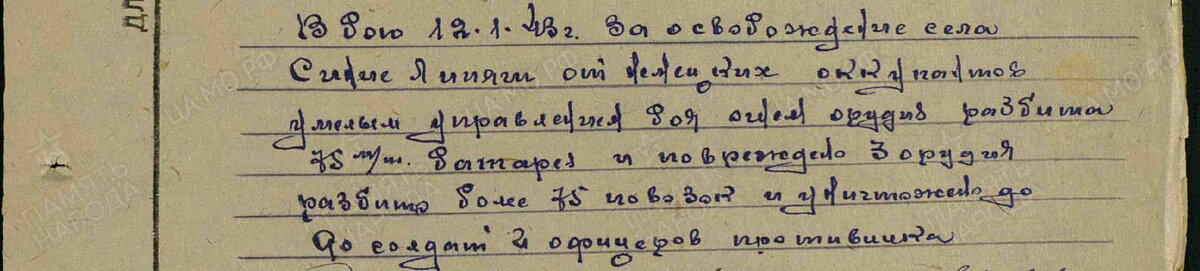 В бою 12.1.43г. За освобождение села
Синие Липяги от немецких оккупантов
умелым управлением боя огнем орудия разбита
75 м/м. батарея и повреждено 3 орудия
разбито более 75 повозок и уничтожено до
солдат и офицеров противника